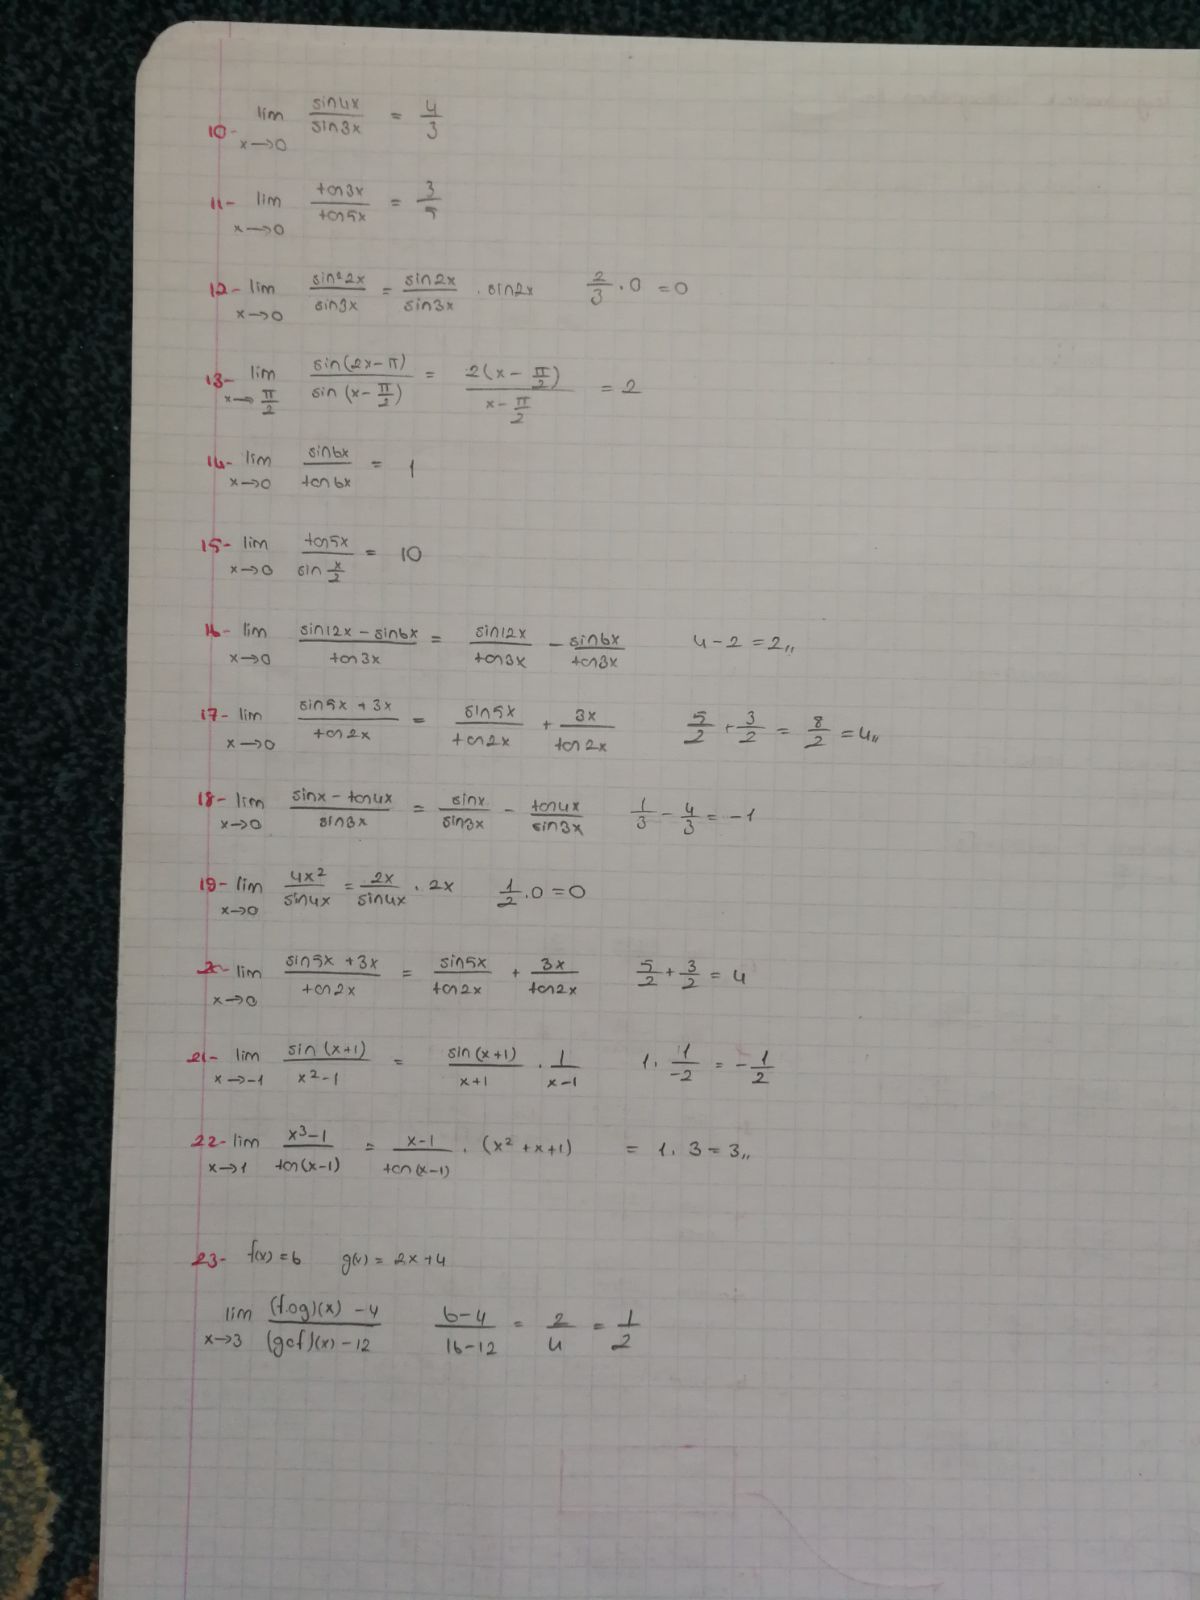 10- lim x→0 sin4x/sin3x = 4/3
11- lim x→0 tan3x/tan5x = 3/5
12- lim x→0 sin²2x/sin3x = sin2x/sin3x . sin2x 2/3 . 0 = 0
13- lim x→π/2 sin(2x-π)/sin(x-π/2) = 2(x-π/2)/x-π/2 = 2
14- lim x→0 sin6x/tan6x = 1
15- lim x→0 tan5x/sin x/2 = 10
16- lim x→0 sin12x - sin6x/tan3x = sin12x/tan3x - sin6x/tan3x 4-2=2,,
17- lim x→0 sin5x + 3x/tan2x = sin5x/tan2x + 3x/tan2x 5/2 + 3/2 = 8/2 = 4,,
18- lim x→0 sinx - tan4x/sin3x = sinx/sin3x - tan4x/sin3x 1/3 - 4/3 = -1
19- lim x→0 4x²/sin4x = 2x/sin4x . 2x 1/2 . 0 = 0
20- lim x→0 sin5x + 3x/tan2x = sin5x/tan2x + 3x/tan2x 5/2 + 3/2 = 4
21- lim x→-1 sin(x+1)/x²-1 = sin(x+1)/x+1 . 1/x-1 1 . 1/-2 = -1/2
22- lim x→1 x³-1/tan(x-1) = x-1/tan(x-1) . (x²+x+1) = 1 . 3 = 3,,
23- f(x)=6 g(x)= 2x+4
lim x→3 (fog)(x) -4/(gof)(x) -12 6-4/16-12 = 2/4 = 1/2